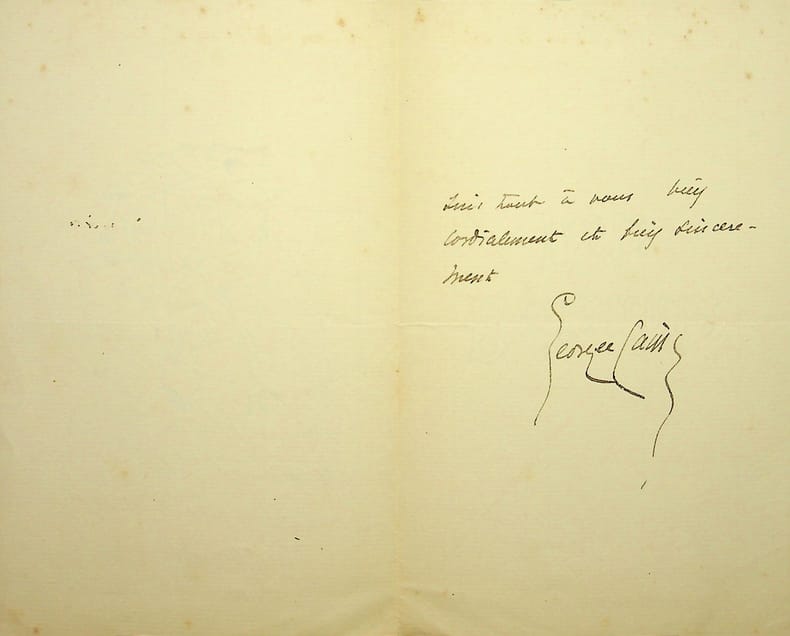 suis tout à vous bien
cordialement et bien sincere-
ment
Georges Cain